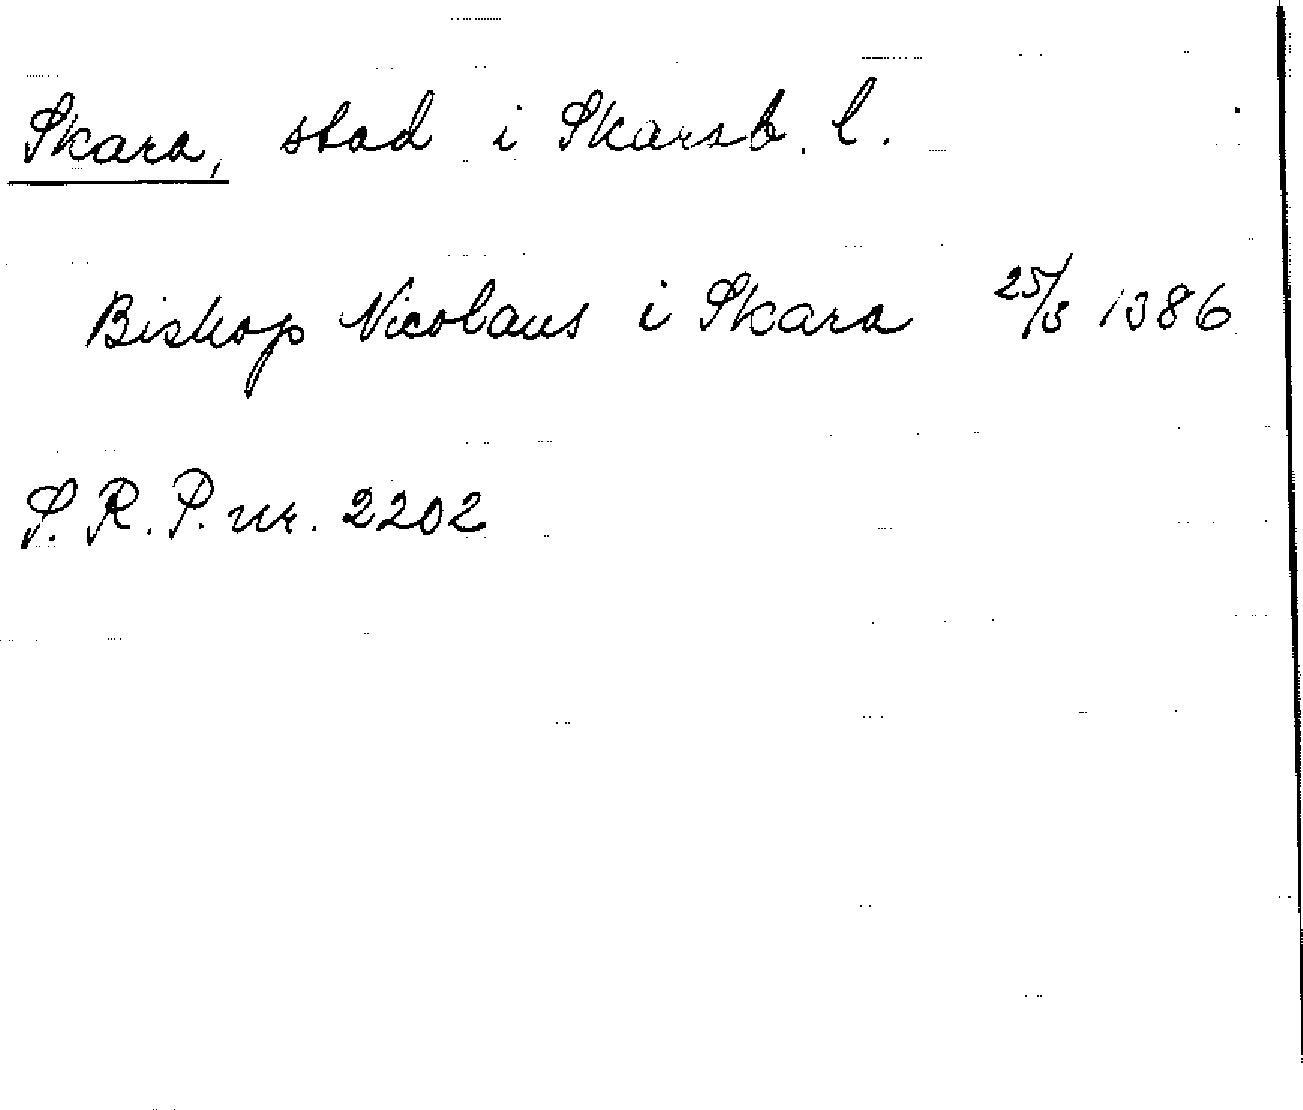 Skara, stad i Skarab. l.
Biskop Nicolaus i Skara 25/3 1386
S. R. P. nr. 2202